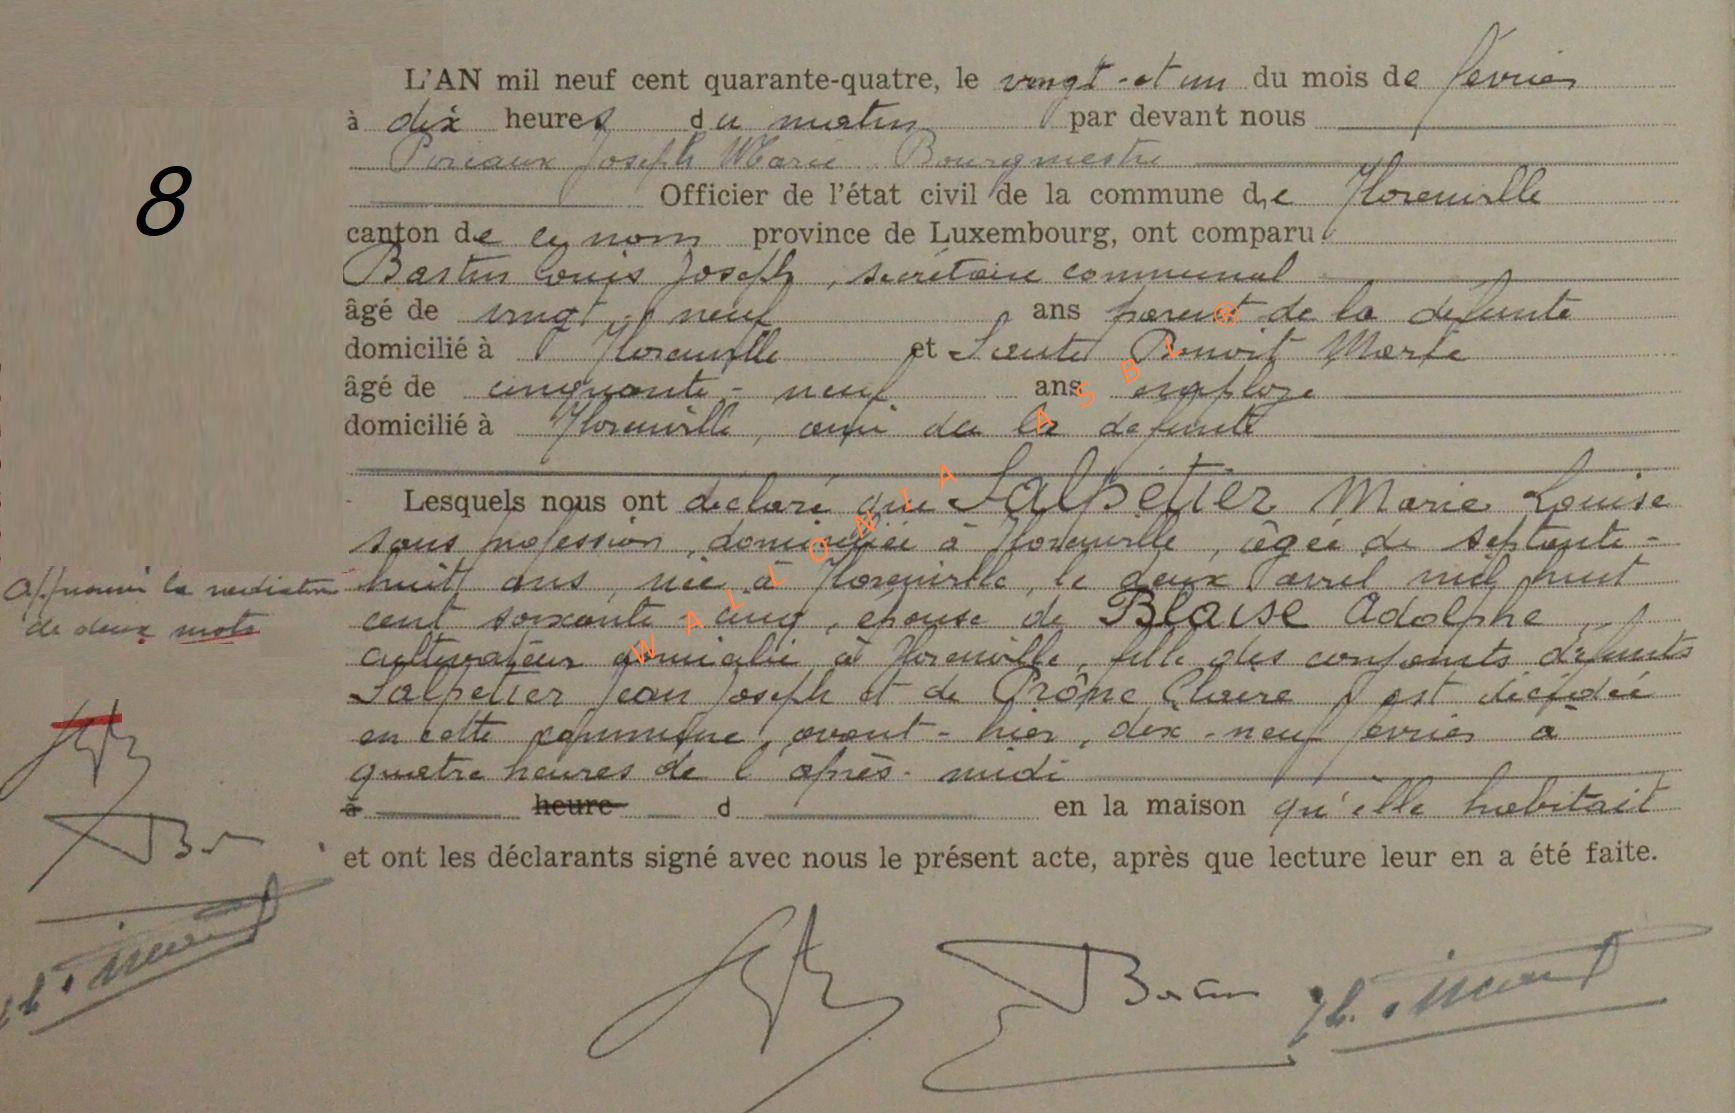 8
L'AN mil neuf cent quarante-quatre, le vingt-et un du mois de février
à dix heures du matin par devant nous
Joseph Marie, Bourgmestre
Officier de l'état civil de la commune de Florenville
canton de ce nom province de Luxembourg, ont comparu
Bastin Louis Joseph, secrétaire communal
âgé de vingt-neuf ans parent de la défunte
domicilié à Florenville et Benoit Marie
âgé de cinquante-neuf ans employé
domicilié à Florenville, ami de la défunte
Lesquels nous ont déclaré que Salpétier Marie Louise
sans profession, domiciliée à Florenville, âgée de septante-
huit ans, née à Florenville, le deux avril mil huit
cent soixante-cinq, épouse de Blaise Adolphe,
cultivateur domicilié à Florenville, fille des conjoints défunts
Salpetier Jean Joseph et de Prône Claire, est décédée
en cette commune, avant-hier, dix-neuf février à
quatre heures de l'après-midi
à heure d en la maison qu'elle habitait
et ont les déclarants signé avec nous le présent acte, après que lecture leur en a été faite.
Approuvé la radiation
de deux mots
WALLONIA ASBL ®